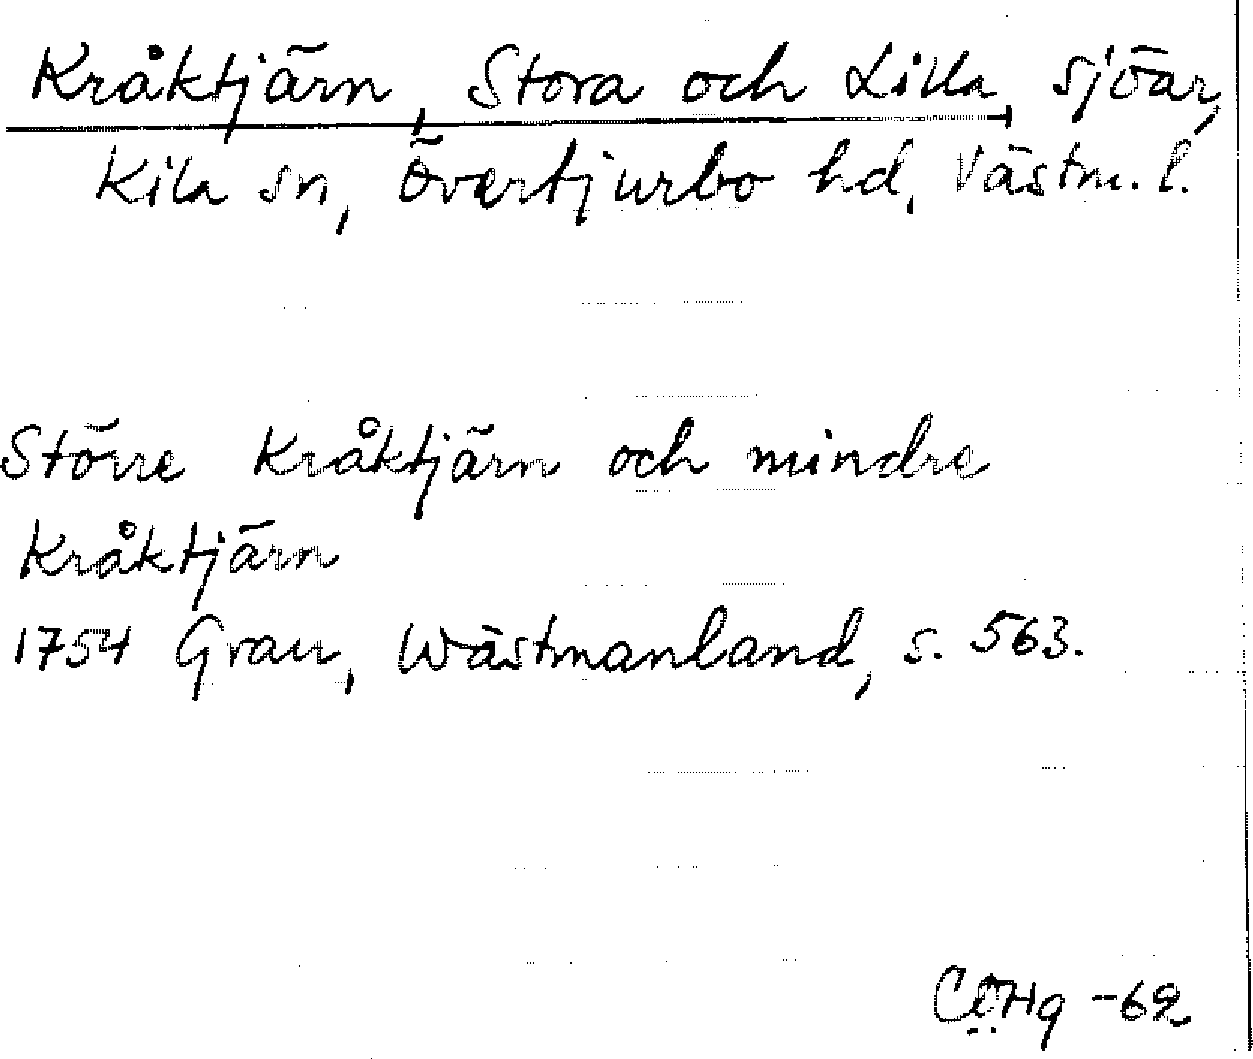 Kråktjärn, Stora och Lilla, sjöar,
Kila sn, Övertjurbo hd, Västm. l.
Större Kråktjärn och mindre
Kråktjärn
1754 Grau, Wästmanland, s. 563.
CÖHg -62